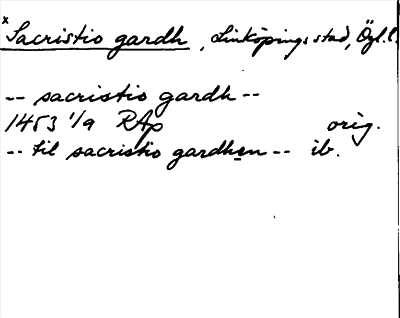 x
Sacristio gardh, Linköpings stad, Ögl.
-- sacristio gardh --
1453 1/9 RAp orig.
-- til sacristio gardhen -- ib.